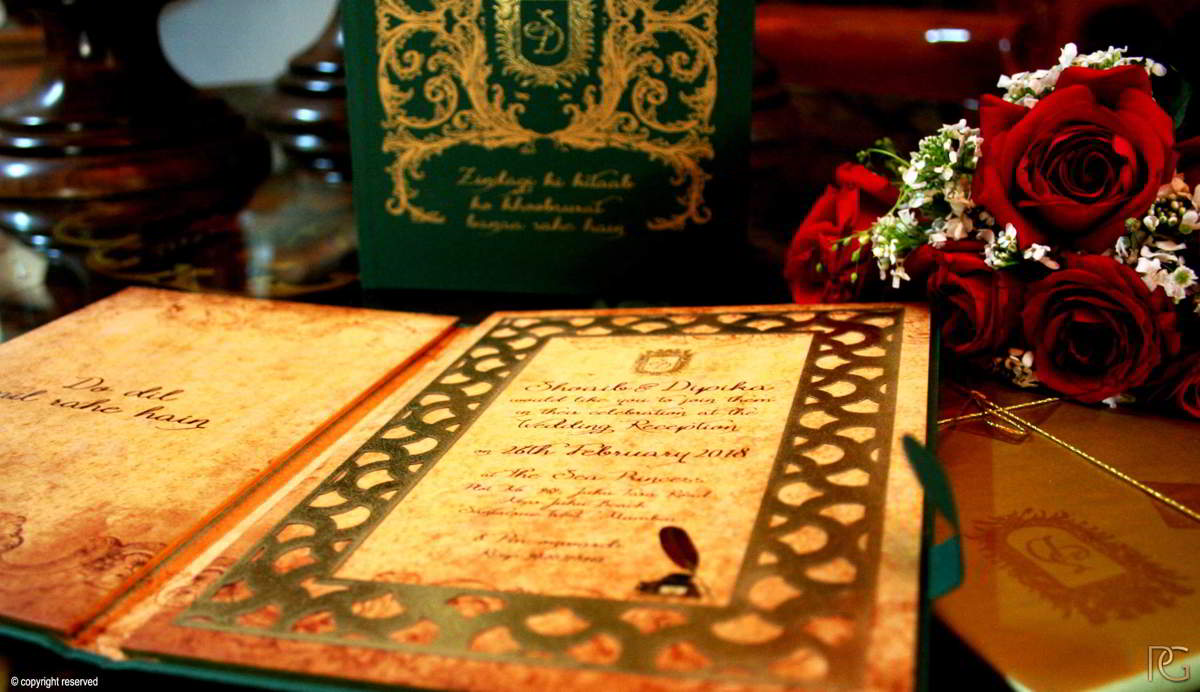 Zindagi ki kitaab
ko khoobsurat
banaa rahe hain
Do dil
mil rahe hain
Shoaib & Dipika
would like you to join them
in their celebration at the
Wedding Reception
on 26th February 2018
at the Sea Princess
Juhu Tara Road
Juhu Beach
Mumbai
PG
© copyright reserved